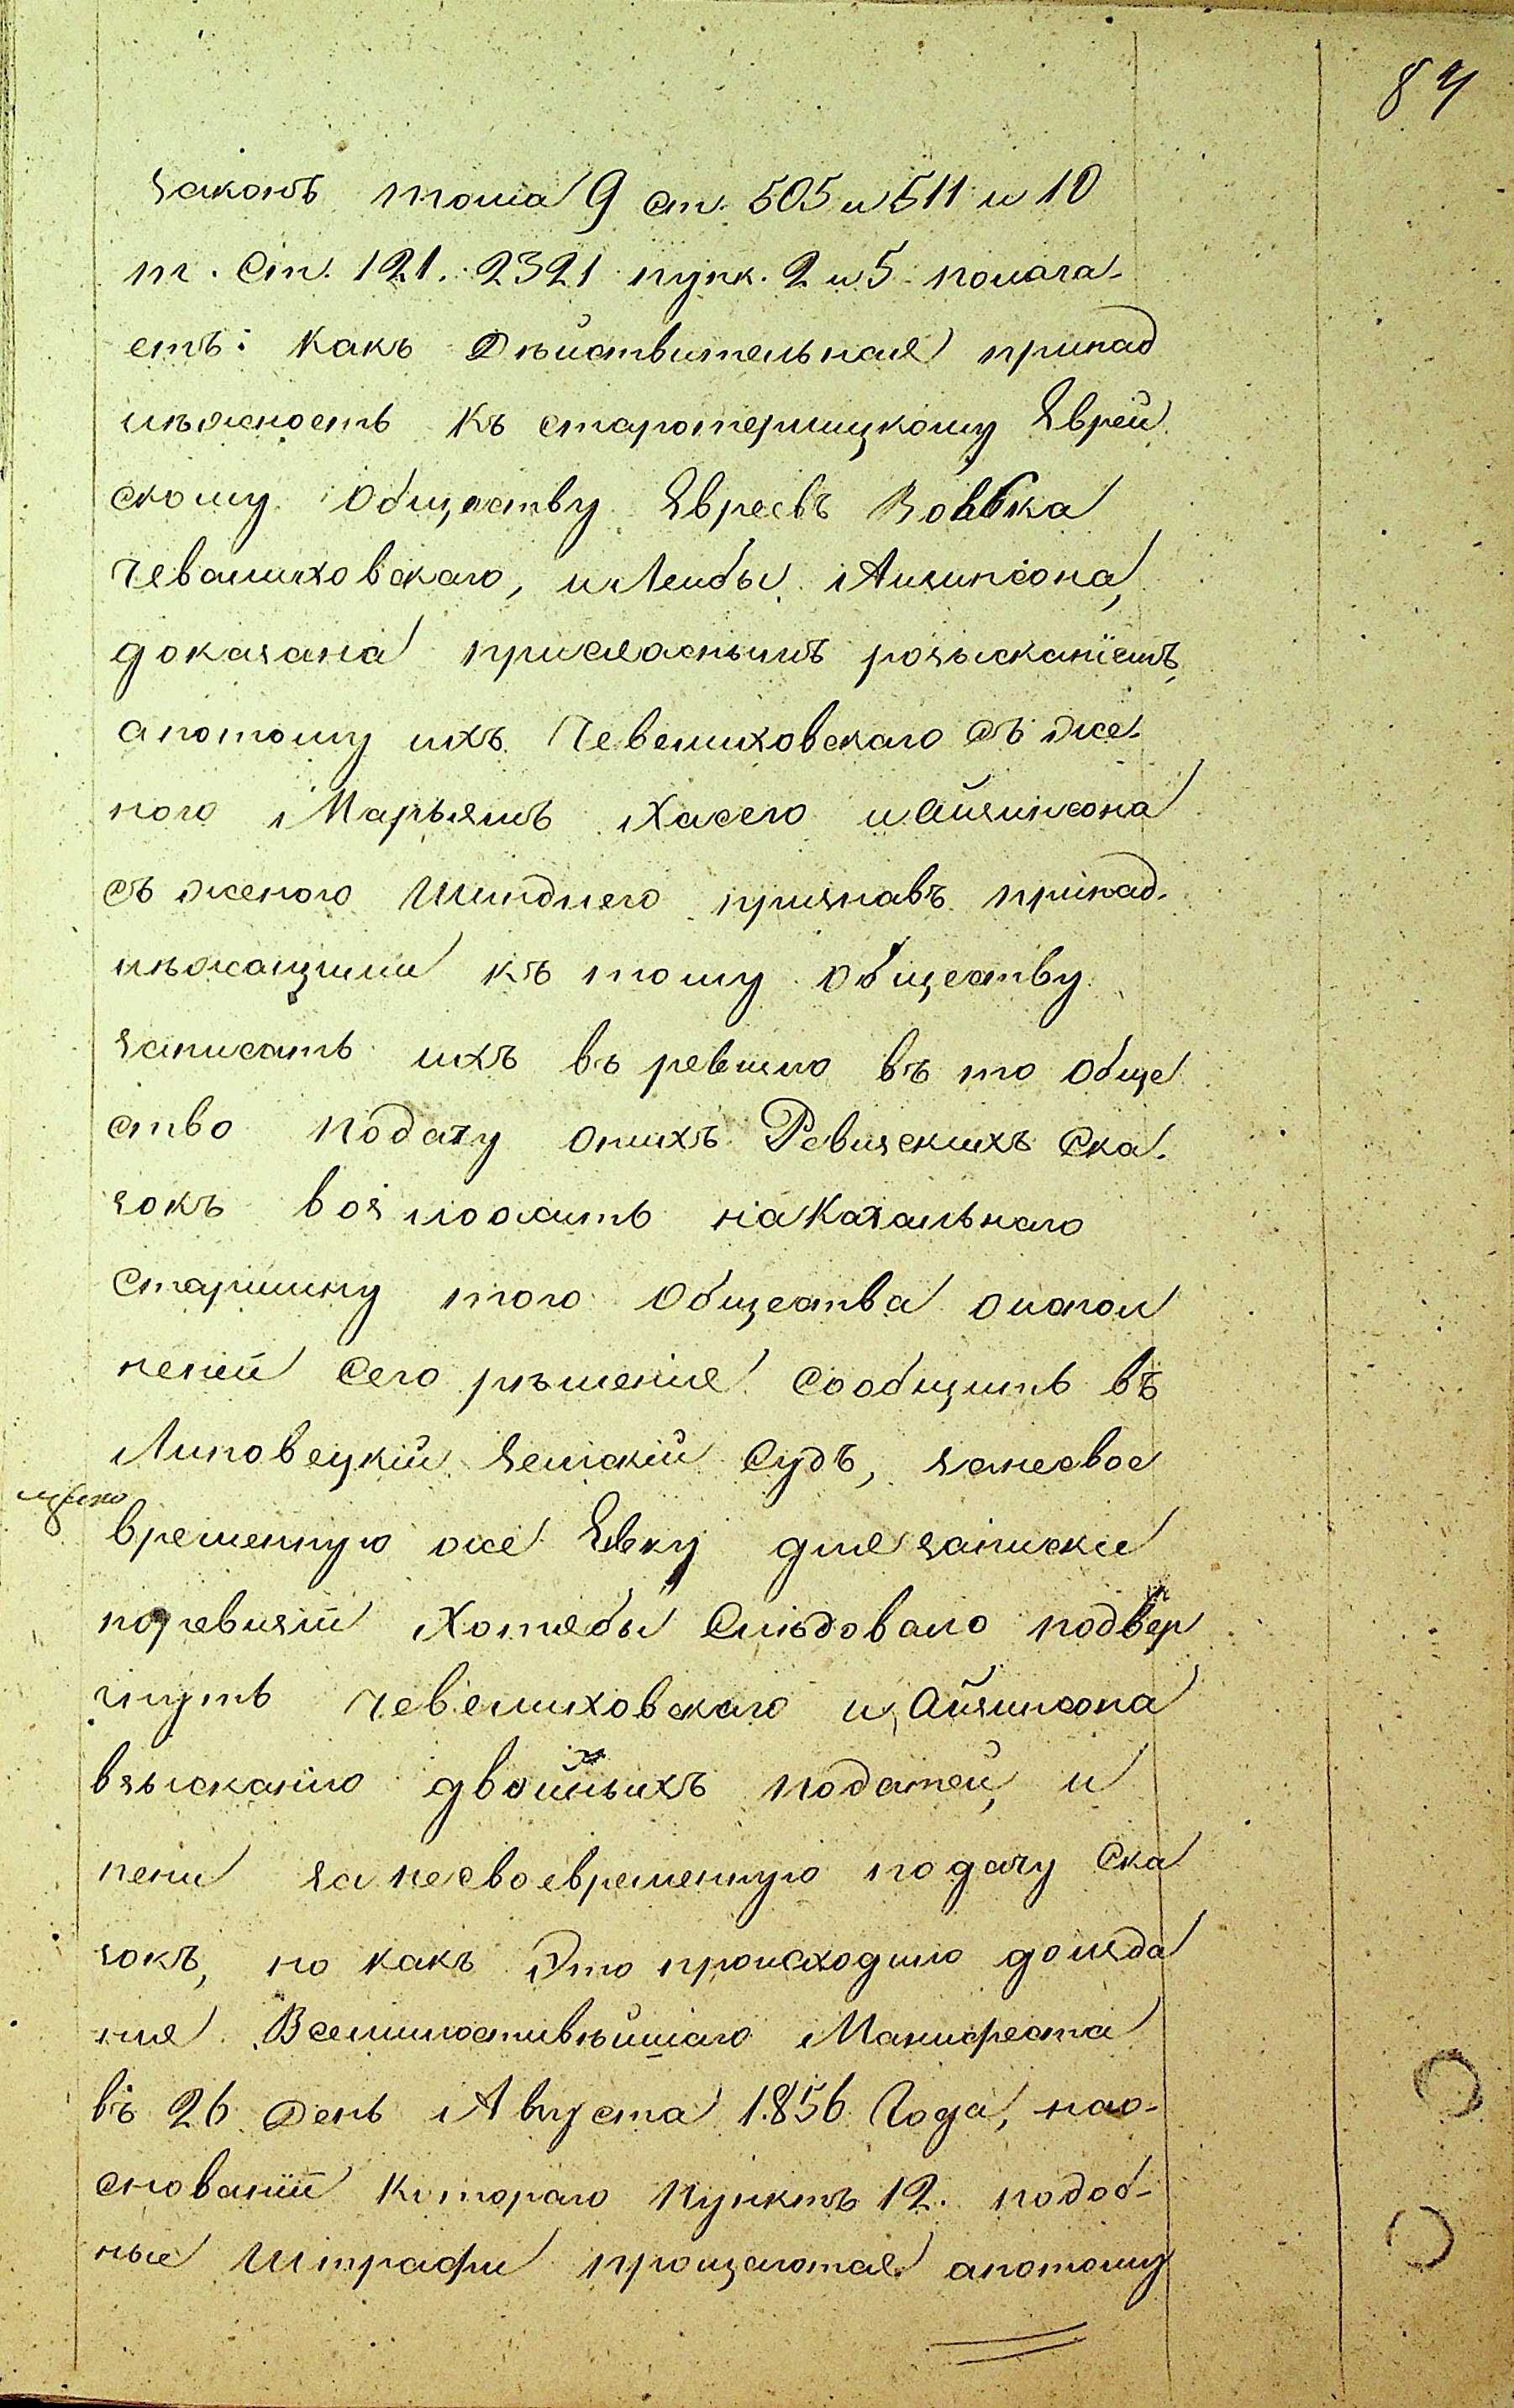 84
законъ тома 9 ст. 505 и 511 и 10
т. Ст. 121. 2321 пунк. 2 и 5 полага-
етъ: Какъ дѣйствительная принад
лѣжность къ старотермицкому Еврей
скому Обществу Евреевъ Вовка
Чевалиховскаго, и Лейбы Айзинсона,
доказана присяжнымъ розысканіемъ,
апотому ихъ Чевелиховскаго съ же-
ного Марьямъ Хасего и Айзинсона
съ женого Шиндлего признавъ принад-
лѣжащими къ тому обществу
записать ихъ въ ревизію въ то Обще
ство подачу онихъ Ревизскихъ Ска-
зокъ возложить на Кагальнаго
Старшину того Общества о испол
неній сего рѣшенія сообщить въ
Липовецкій Земскій Судъ, занесвое
временную же Явку для записки
поревизіи Хотябы Слѣдовало подвер
гнуть Чевелиховскаго и Айзинсона
взысканію двойныхъ податей, и
пени за несвоевременную подачу Ска
зокъ, но какъ Это происходило доизда
нія Всемилостивѣйшаго Манифеста
въ 26 день Августа 1856 Года, нао-
снованіи Котораго Пунктъ 12. подоб-
ные Штрафи прощаются апотому